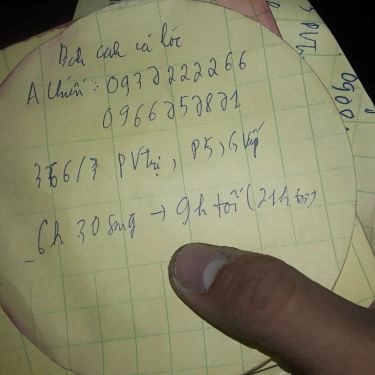 Bánh canh cá lóc
A Chiến : 0932222266
0966252821
366/7 PVTrị, P5, G Vấp
_ 6h 30 sáng → 9h tối (21h tối)
0900